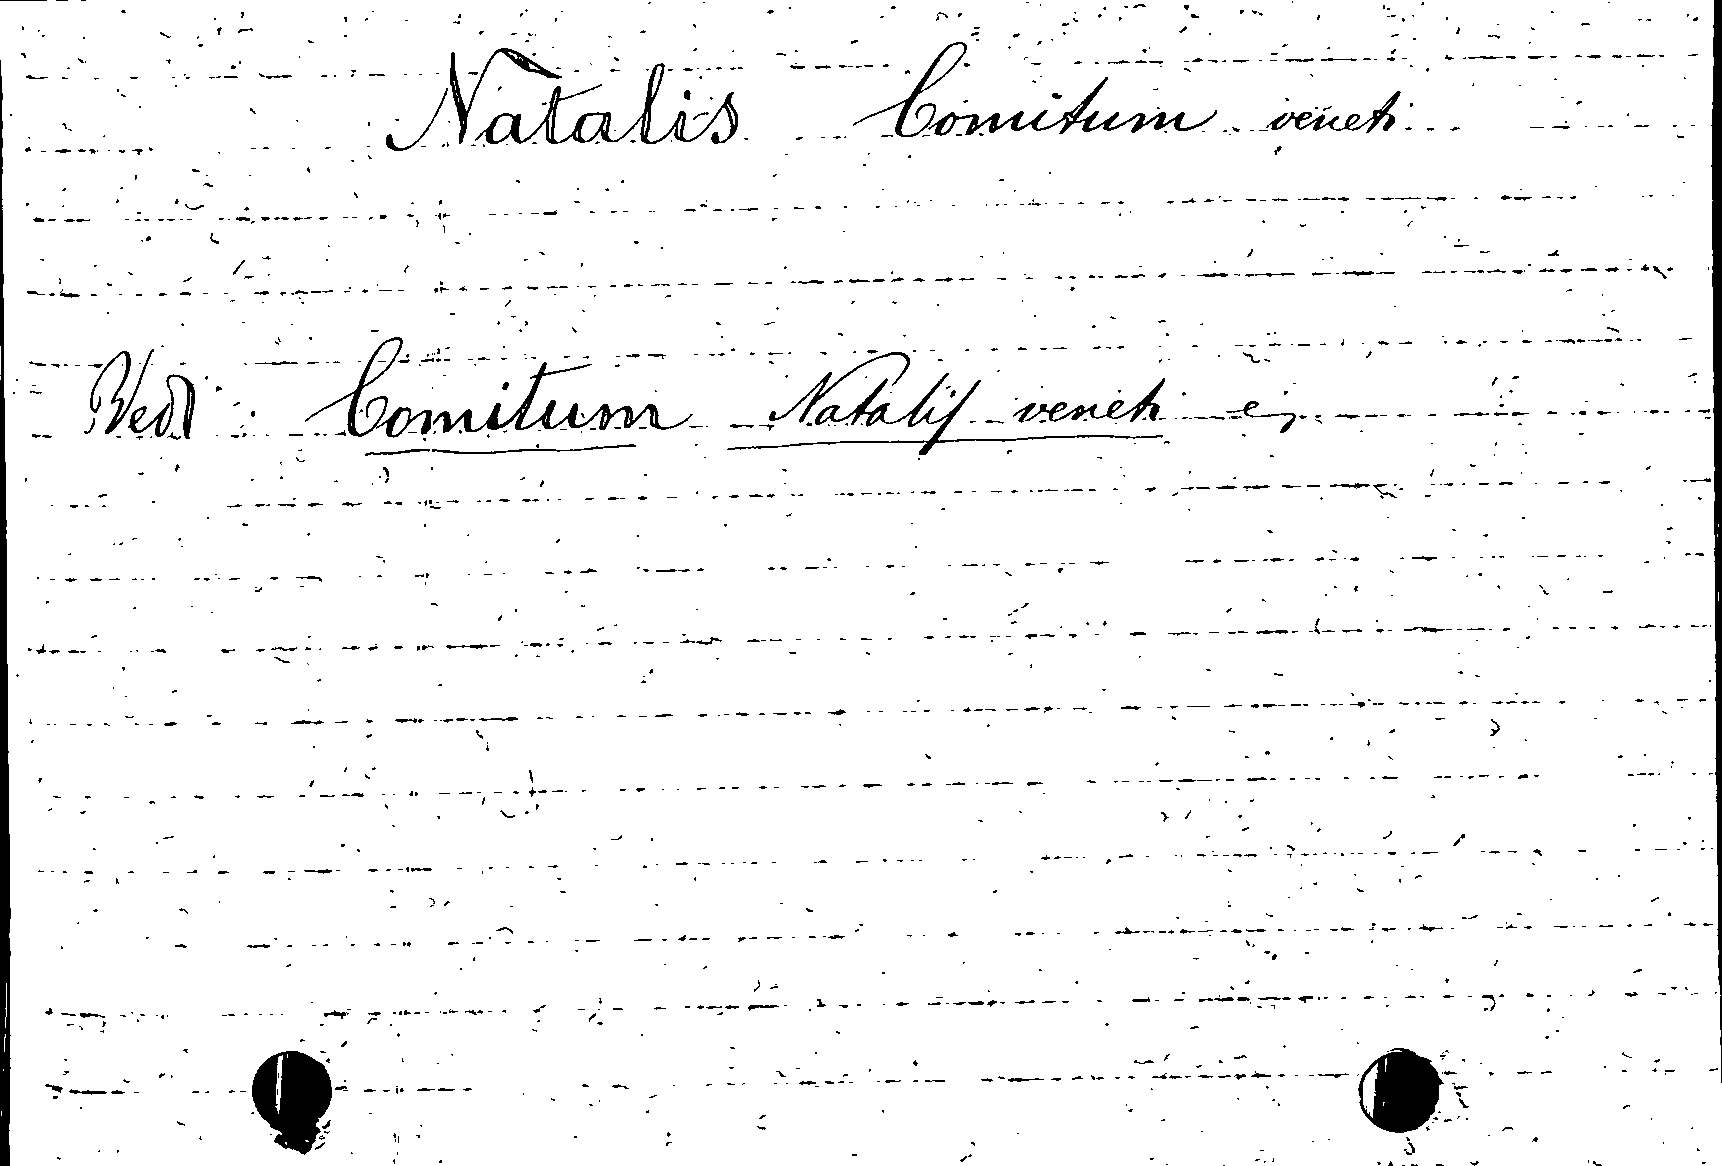 Natalis Comitum veneti
Vedi: Comitum Natalis veneti